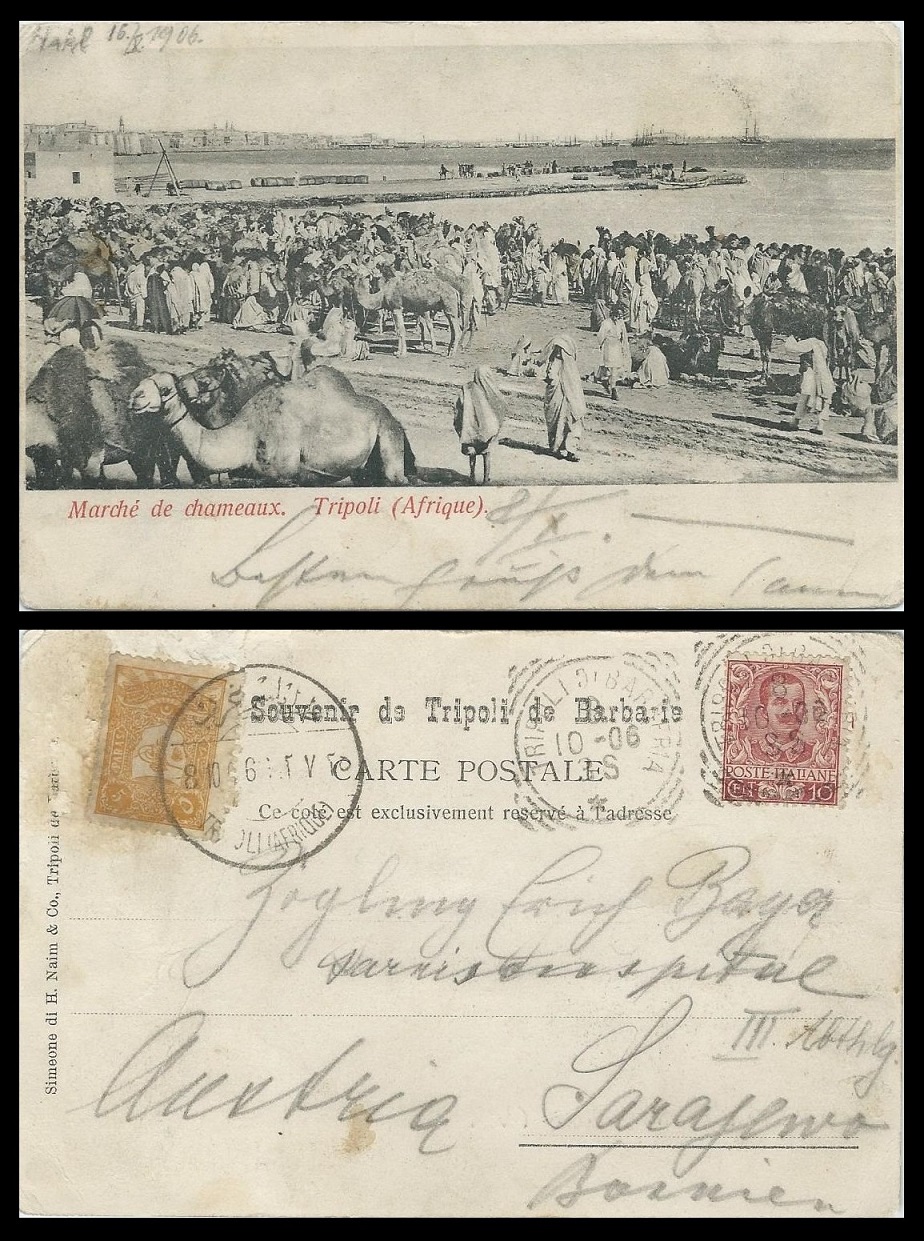 16/X 1906.
Marché de chameaux. Tripoli (Afrique).
8/X.
Besten Gruß dem
Souvenir de Tripoli de Barbarie
CARTE POSTALE
Ce côté est exclusivement reservé à l'adresse
TRIPOLI DI BARBERIA
10 -06
POSTE-ITALIANE
10
8 10
TRIPOLI (AFRIQUE)
Simeone di H. Naim & Co., Tripoli de
Zögling Erich
Garnisonsspital
III. Abthlg.
Austria Sarajewo
Bosnien